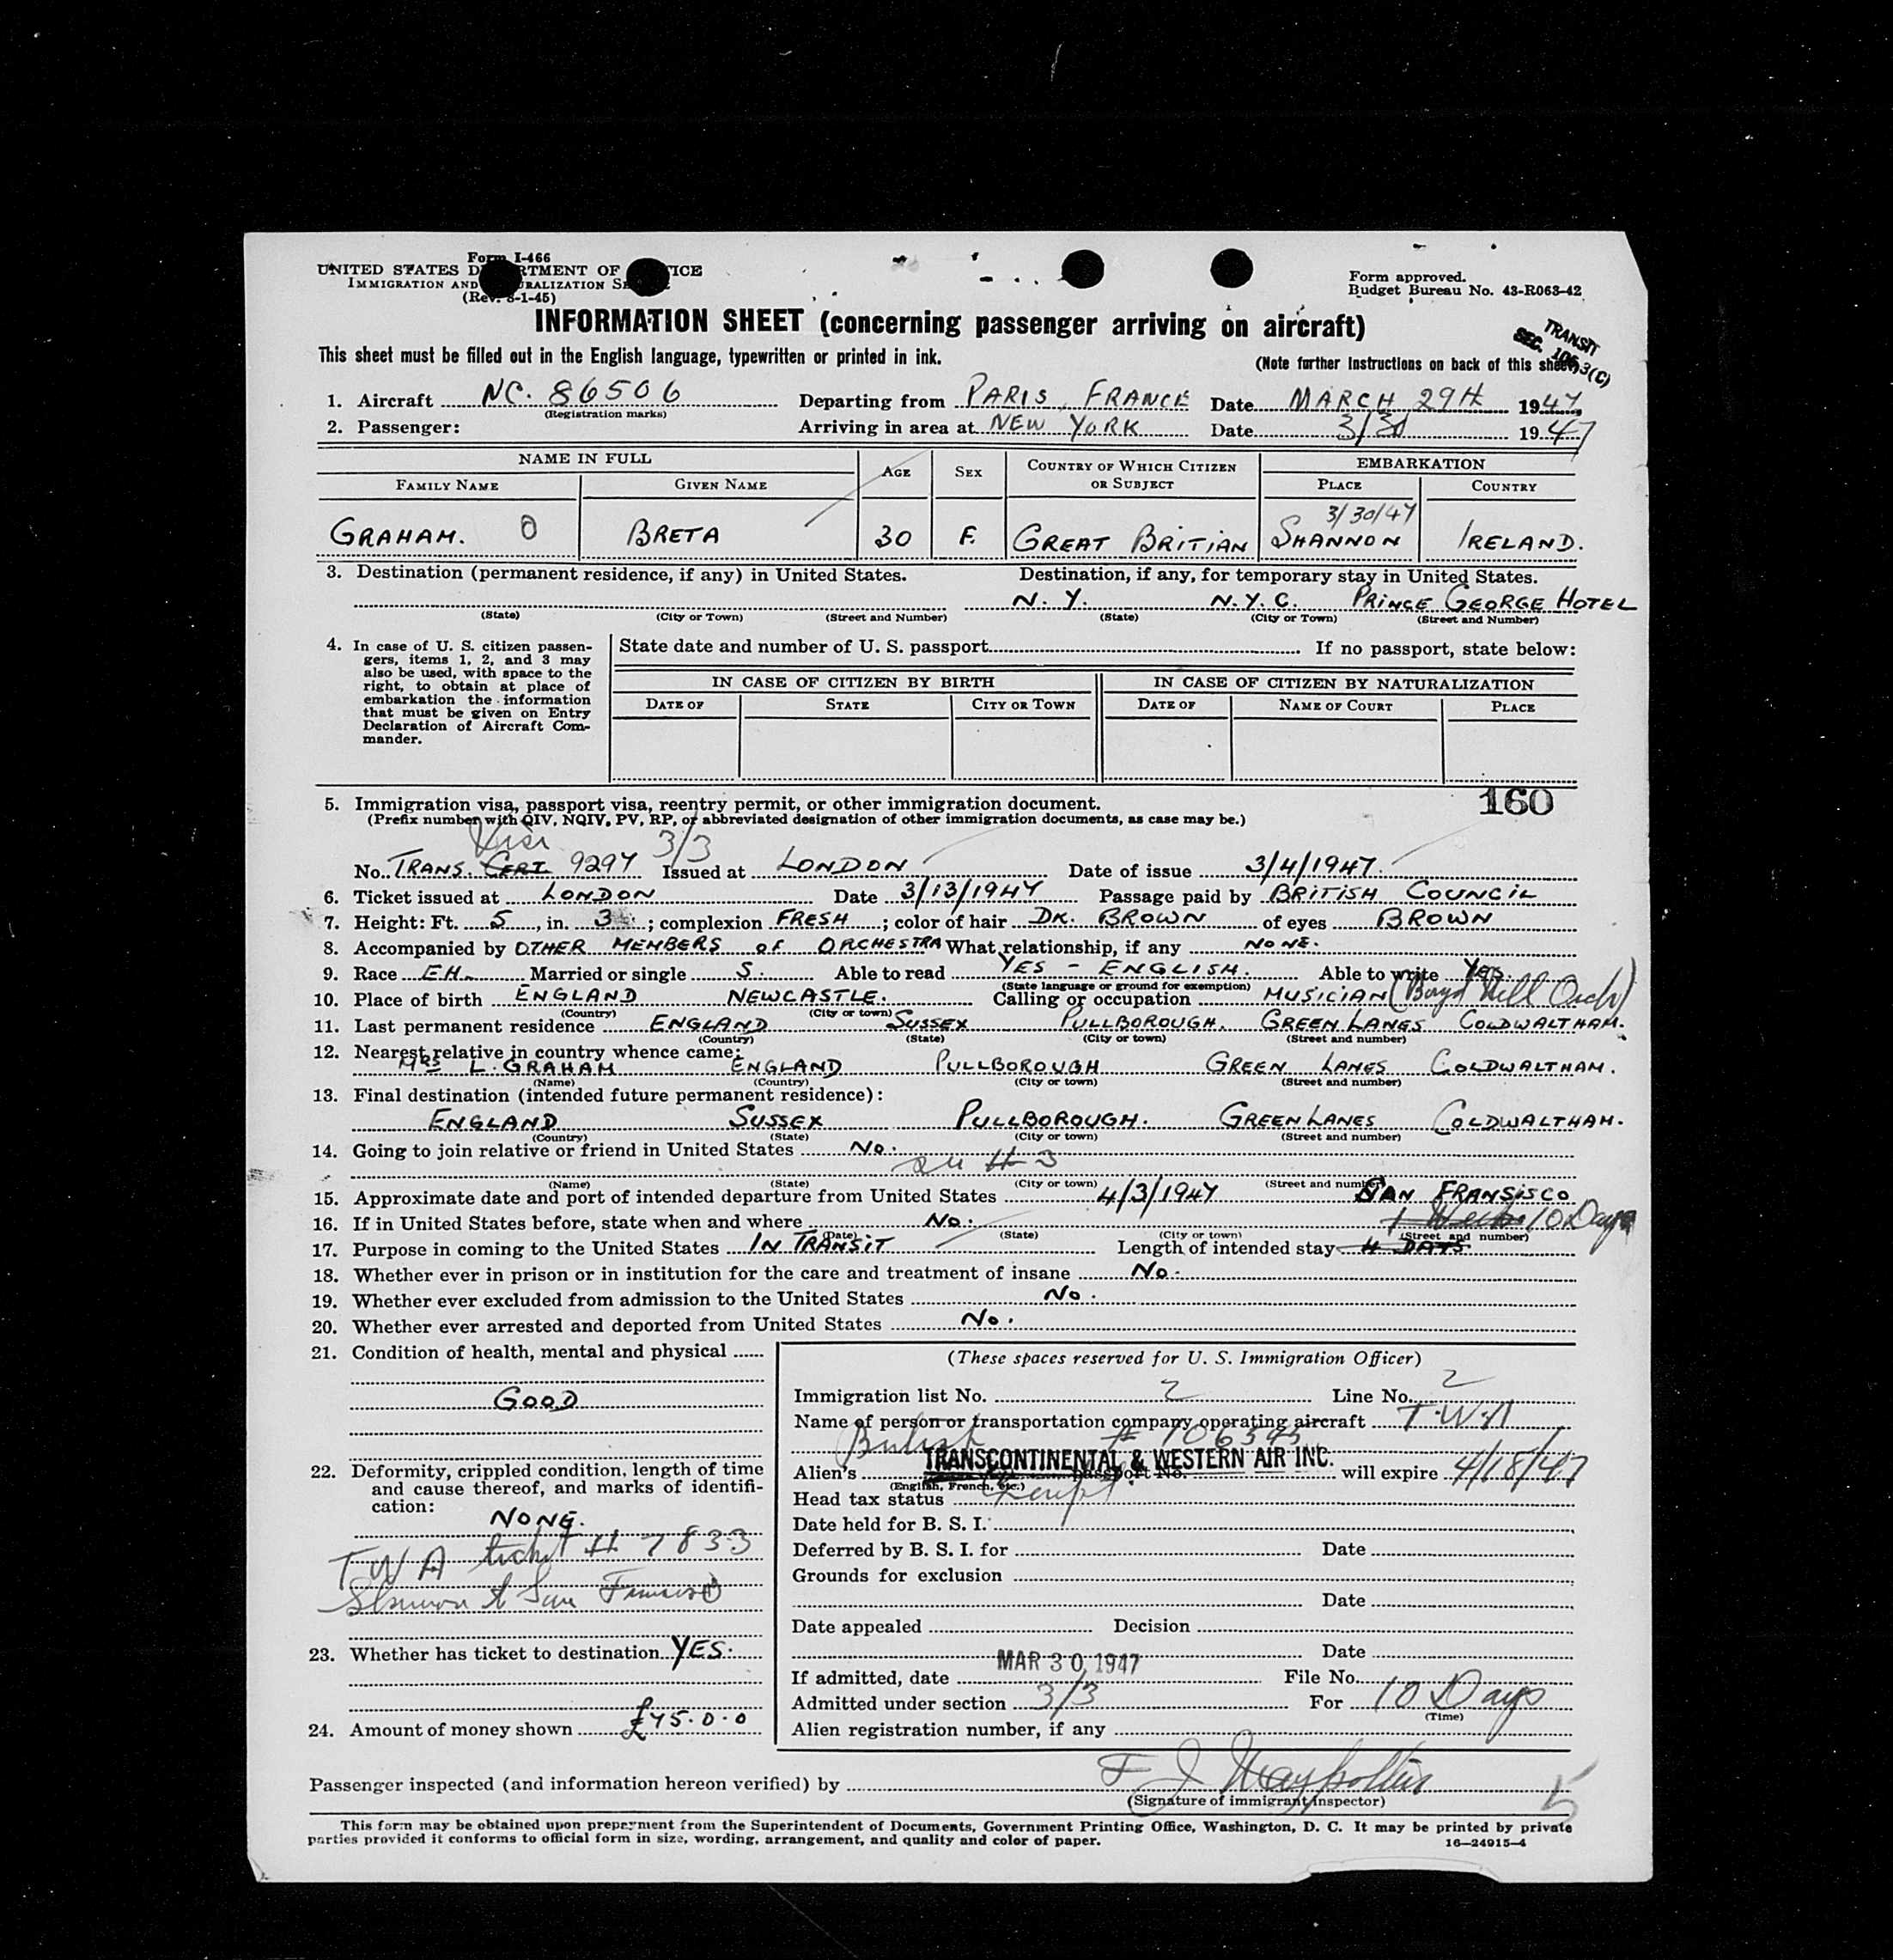 Form I-466
UNITED STATES DEPARTMENT OF JUSTICE
IMMIGRATION AND NATURALIZATION SERVICE
(Rev. 8-1-45)
Form approved.
Budget Bureau No. 43-R063-42
INFORMATION SHEET (concerning passenger arriving on aircraft)
TRANSIT
SEC. 106.3(C)
This sheet must be filled out in the English language, typewritten or printed in ink.
(Note further instructions on back of this sheet)
1. Aircraft NC. 86506 Departing from PARIS, FRANCE Date MARCH 29th 1947
(Registration marks)
2. Passenger: Arriving in area at NEW YORK Date 3/30 1947
NAME IN FULL AGE SEX COUNTRY OF WHICH CITIZEN OR SUBJECT EMBARKATION
FAMILY NAME GIVEN NAME PLACE COUNTRY
3/30/47
GRAHAM. 0 BRETA 30 F. GREAT BRITIAN SHANNON IRELAND.
3. Destination (permanent residence, if any) in United States. Destination, if any, for temporary stay in United States.
N. Y. N. Y. C. PRINCE GEORGE HOTEL
(State) (City or Town) (Street and Number) (State) (City or Town) (Street and Number)
4. In case of U. S. citizen passengers, items 1, 2, and 3 may also be used, with space to the right, to obtain at place of embarkation the information that must be given on Entry Declaration of Aircraft Commander.
State date and number of U. S. passport If no passport, state below:
IN CASE OF CITIZEN BY BIRTH IN CASE OF CITIZEN BY NATURALIZATION
DATE OF STATE CITY OR TOWN DATE OF NAME OF COURT PLACE
160
5. Immigration visa, passport visa, reentry permit, or other immigration document.
(Prefix number with QIV, NQIV, PV, RP, or abbreviated designation of other immigration documents, as case may be.)
Visa 3/3
No. TRANS. CERT 9297 Issued at LONDON Date of issue 3/4/1947.
6. Ticket issued at LONDON Date 3/13/1947 Passage paid by BRITISH COUNCIL
7. Height: Ft. 5, in. 3; complexion FRESH; color of hair DK. BROWN of eyes BROWN
8. Accompanied by OTHER MEMBERS OF ORCHESTRA What relationship, if any NONE.
9. Race EH. Married or single S. Able to read YES - ENGLISH. Able to write YES.
(State language or ground for exemption)
10. Place of birth ENGLAND NEWCASTLE. Calling or occupation MUSICIAN (Boyd Neel Orch)
(Country) (City or town)
11. Last permanent residence ENGLAND SUSSEX PULLBOROUGH. GREEN LANES COLDWALTHAM.
(Country) (State) (City or town) (Street and number)
12. Nearest relative in country whence came:
MRS L. GRAHAM ENGLAND PULLBOROUGH GREEN LANES COLDWALTHAM.
(Name) (Country) (City or town) (Street and number)
13. Final destination (intended future permanent residence):
ENGLAND SUSSEX PULLBOROUGH. GREEN LANES COLDWALTHAM.
(Country) (State) (City or town) (Street and number)
14. Going to join relative or friend in United States No.
# 3
(Name) (State) (City or town) (Street and number)
15. Approximate date and port of intended departure from United States 4/3/1947 SAN FRANSISCO
16. If in United States before, state when and where No. 1 Week 10 Days
(Date) (State) (City or town) (Street and number)
17. Purpose in coming to the United States IN TRANSIT Length of intended stay 4 DAYS.
18. Whether ever in prison or in institution for the care and treatment of insane No.
19. Whether ever excluded from admission to the United States No.
20. Whether ever arrested and deported from United States No.
21. Condition of health, mental and physical
GOOD
22. Deformity, crippled condition, length of time and cause thereof, and marks of identification:
NONE.
TWA ticket # 7833
Shannon to San Francisco
23. Whether has ticket to destination YES.
24. Amount of money shown £45.0.0
(These spaces reserved for U. S. Immigration Officer)
Immigration list No. 2 Line No. 2
Name of person or transportation company operating aircraft T.W.A
British # 106393
TRANSCONTINENTAL & WESTERN AIR INC.
Alien's passport No. will expire 4/18/47
(English, French, etc.)
Head tax status Exempt
Date held for B. S. I.
Deferred by B. S. I. for Date
Grounds for exclusion
Date
Date appealed Decision
Date
MAR 30 1947
If admitted, date File No.
Admitted under section 3/3 For 10 Days
(Time)
Alien registration number, if any
Passenger inspected (and information hereon verified) by F J
(Signature of immigrant inspector)
5
This form may be obtained upon prepayment from the Superintendent of Documents, Government Printing Office, Washington, D. C. It may be printed by private
parties provided it conforms to official form in size, wording, arrangement, and quality and color of paper.
16—24915-4